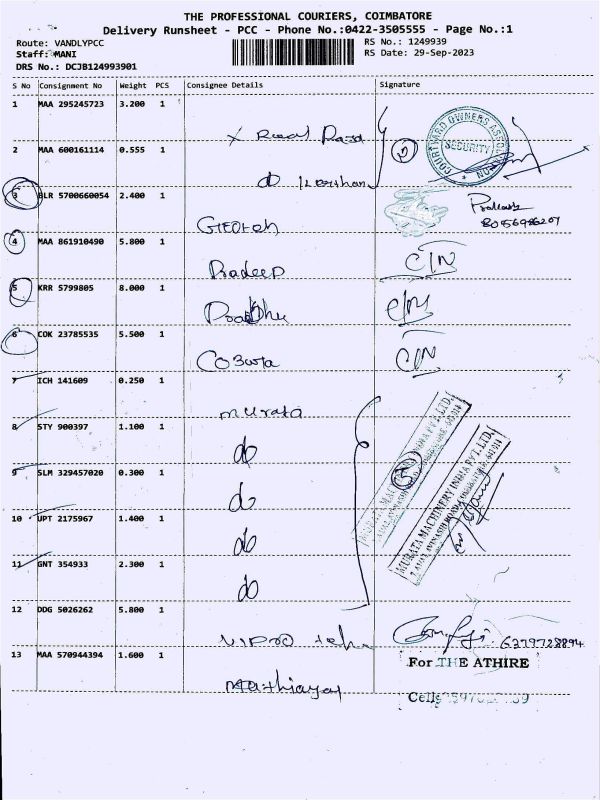 THE PROFESSIONAL COURIERS, COIMBATORE
Delivery Runsheet - PCC - Phone No.:0422-3505555 - Page No.:1
Route: VANDLYPCC
RS No.: 1249939
Staff: MANI
RS Date: 29-Sep-2023
DRS No.: DCJB124993901
S No Consignment No Weight PCS Consignee Details Signature
1 MAA 295245723 3.200 1
2 MAA 600161114 0.555 1
COURTYARD OWNERS ASSOCIATION
SECURITY
3 BLR 5700660054 2.400 1
8056986207
4 MAA 861910490 5.800 1 Pradeep C/N
5 KRR 5799805 8.000 1 Prabhu C/N
6 COK 23785535 5.500 1 C/N
7 ICH 141609 0.250 1 murata
8 STY 900397 1.100 1 do
9 SLM 329457020 0.300 1 do
10 UPT 2175967 1.400 1 do
11 GNT 354933 2.300 1 do
5
MURATA MACHINERY INDIA PVT. LTD.
12 DDG 5026262 5.800 1 6379728894
13 MAA 570944394 1.600 1
For THE ATHIRE